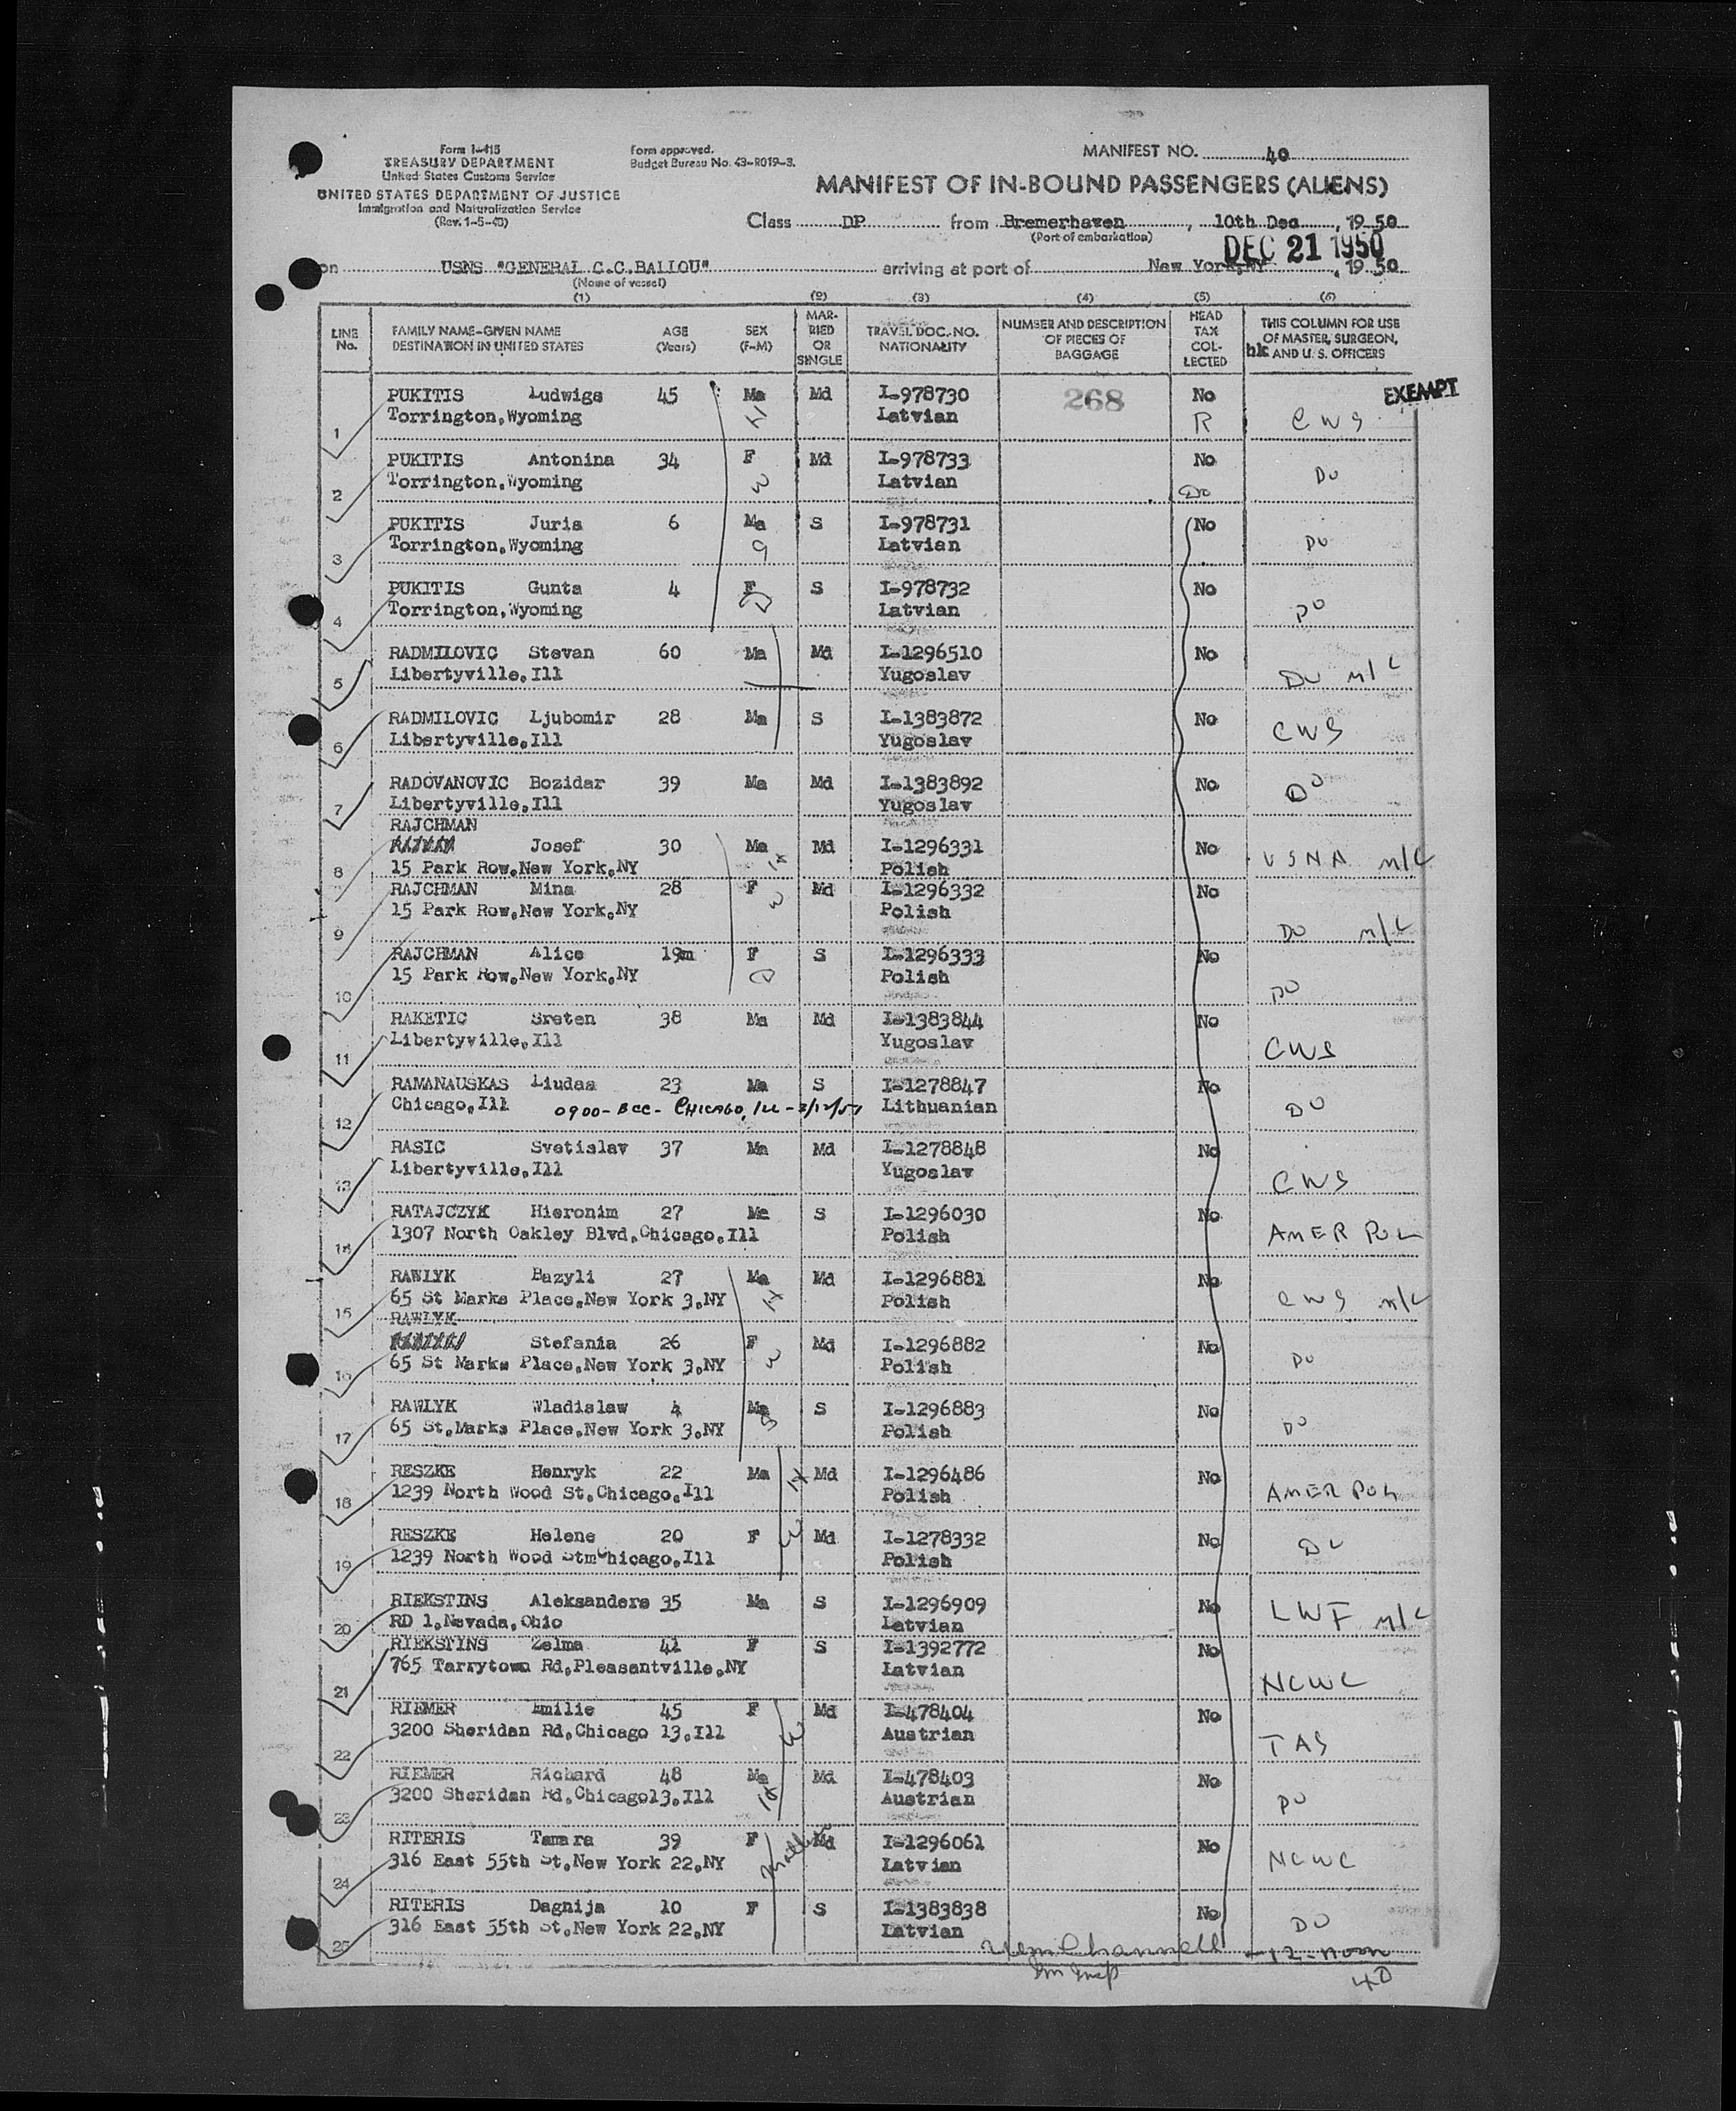 Form I-415
TREASURY DEPARTMENT
United States Customs Service
UNITED STATES DEPARTMENT OF JUSTICE
Immigration and Naturalization Service
(Rev. 1-5-49)
Form approved.
Budget Bureau No. 43-R019-3.
MANIFEST NO. 40
MANIFEST OF IN-BOUND PASSENGERS (ALIENS)
Class DP from Bremerhaven, 10th Dec, 1950
(Port of embarkation)
DEC 21 1950
on USNS "GENERAL C.C.BALLOU" arriving at port of New York,NY, 1950
(Name of vessel)
(1) (2) (3) (4) (5) (6)
LINE No. FAMILY NAME-GIVEN NAME DESTINATION IN UNITED STATES AGE (Years) SEX (F-M) MARRIED OR SINGLE TRAVEL DOC. NO. NATIONALITY NUMBER AND DESCRIPTION OF PIECES OF BAGGAGE HEAD TAX COLLECTED THIS COLUMN FOR USE OF MASTER, SURGEON, AND U. S. OFFICERS
EXEMPT
1 PUKITIS Ludwigs 45 Ma Md I-978730 268 No
Torrington,Wyoming H Latvian R CWS
2 PUKITIS Antonina 34 F Md I-978733 No
Torrington,Wyoming W Latvian Do DO
3 PUKITIS Juris 6 Ma S I-978731 No
Torrington,Wyoming S Latvian DO
4 PUKITIS Gunta 4 F S I-978732 No
Torrington,Wyoming D Latvian DO
5 RADMILOVIC Stevan 60 Ma Md I-1296510 No
Libertyville,Ill Yugoslav DO M/L
6 RADMILOVIC Ljubomir 28 Ma S I-1383872 No
Libertyville,Ill Yugoslav CWS
7 RADOVANOVIC Bozidar 39 Ma Md I-1383892 No
Libertyville,Ill Yugoslav DO
RAJCHMAN
8 Josef 30 Ma Md I-1296331 No
15 Park Row,New York,NY H Polish USNA M/L
9 RAJCHMAN Mina 28 F Md I-1296332 No
15 Park Row,New York,NY W Polish DO M/L
10 RAJCHMAN Alice 19m F S I-1296333 No
15 Park Row,New York,NY D Polish DO
11 RAKETIC Sreten 38 Ma Md I-1383844 No
Libertyville,Ill Yugoslav CWS
12 RAMANAUSKAS Liudas 23 Ma S I-1278847 No
Chicago,Ill 0900-BCC- CHICAGO, ILL - Lithuanian DO
13 RASIC Svetislav 37 Ma Md I-1278848 No
Libertyville,Ill Yugoslav CWS
14 RATAJCZYK Hieronim 27 Ma S I-1296030 No
1307 North Oakley Blvd,Chicago,Ill Polish AMER POL
15 RAWLYK Bazyli 27 Ma Md I-1296881 No
65 St Marks Place,New York 3,NY H Polish CWS M/L
RAWLYK
16 Stefania 26 F Md I-1296882 No
65 St Marks Place,New York 3,NY W Polish DO
17 RAWLYK Wladislaw 4 Ma S I-1296883 No
65 St.Marks Place,New York 3,NY S Polish DO
18 RESZKE Henryk 22 Ma H Md I-1296486 No
1239 North Wood St,Chicago,Ill Polish AMER POL
19 RESZKE Helene 20 F W Md I-1278332 No
1239 North Wood StmChicago,Ill Polish DO
20 RIEKSTINS Aleksanders 35 Ma S I-1296909 No
RD 1,Nevada,Ohio Latvian LWF M/L
21 RIEKSTINS Zelma 41 F S I-1392772 No
765 Tarrytown Rd,Pleasantville,NY Latvian NCWC
22 RIEMER Emilie 45 F Md I-478404 No
3200 Sheridan Rd,Chicago 13,Ill W Austrian TAS
23 RIEMER Richard 48 Ma Md I-478403 No
3200 Sheridan Rd,Chicago13,Ill H Austrian DO
24 RITERIS Tamara 39 F Md I-1296061 No
316 East 55th St,New York 22,NY Mother Latvian NCWC
25 RITERIS Dagnija 10 F S I-1383838 No
316 East 55th St,New York 22,NY Latvian DO
12-noon
Im Insp
40